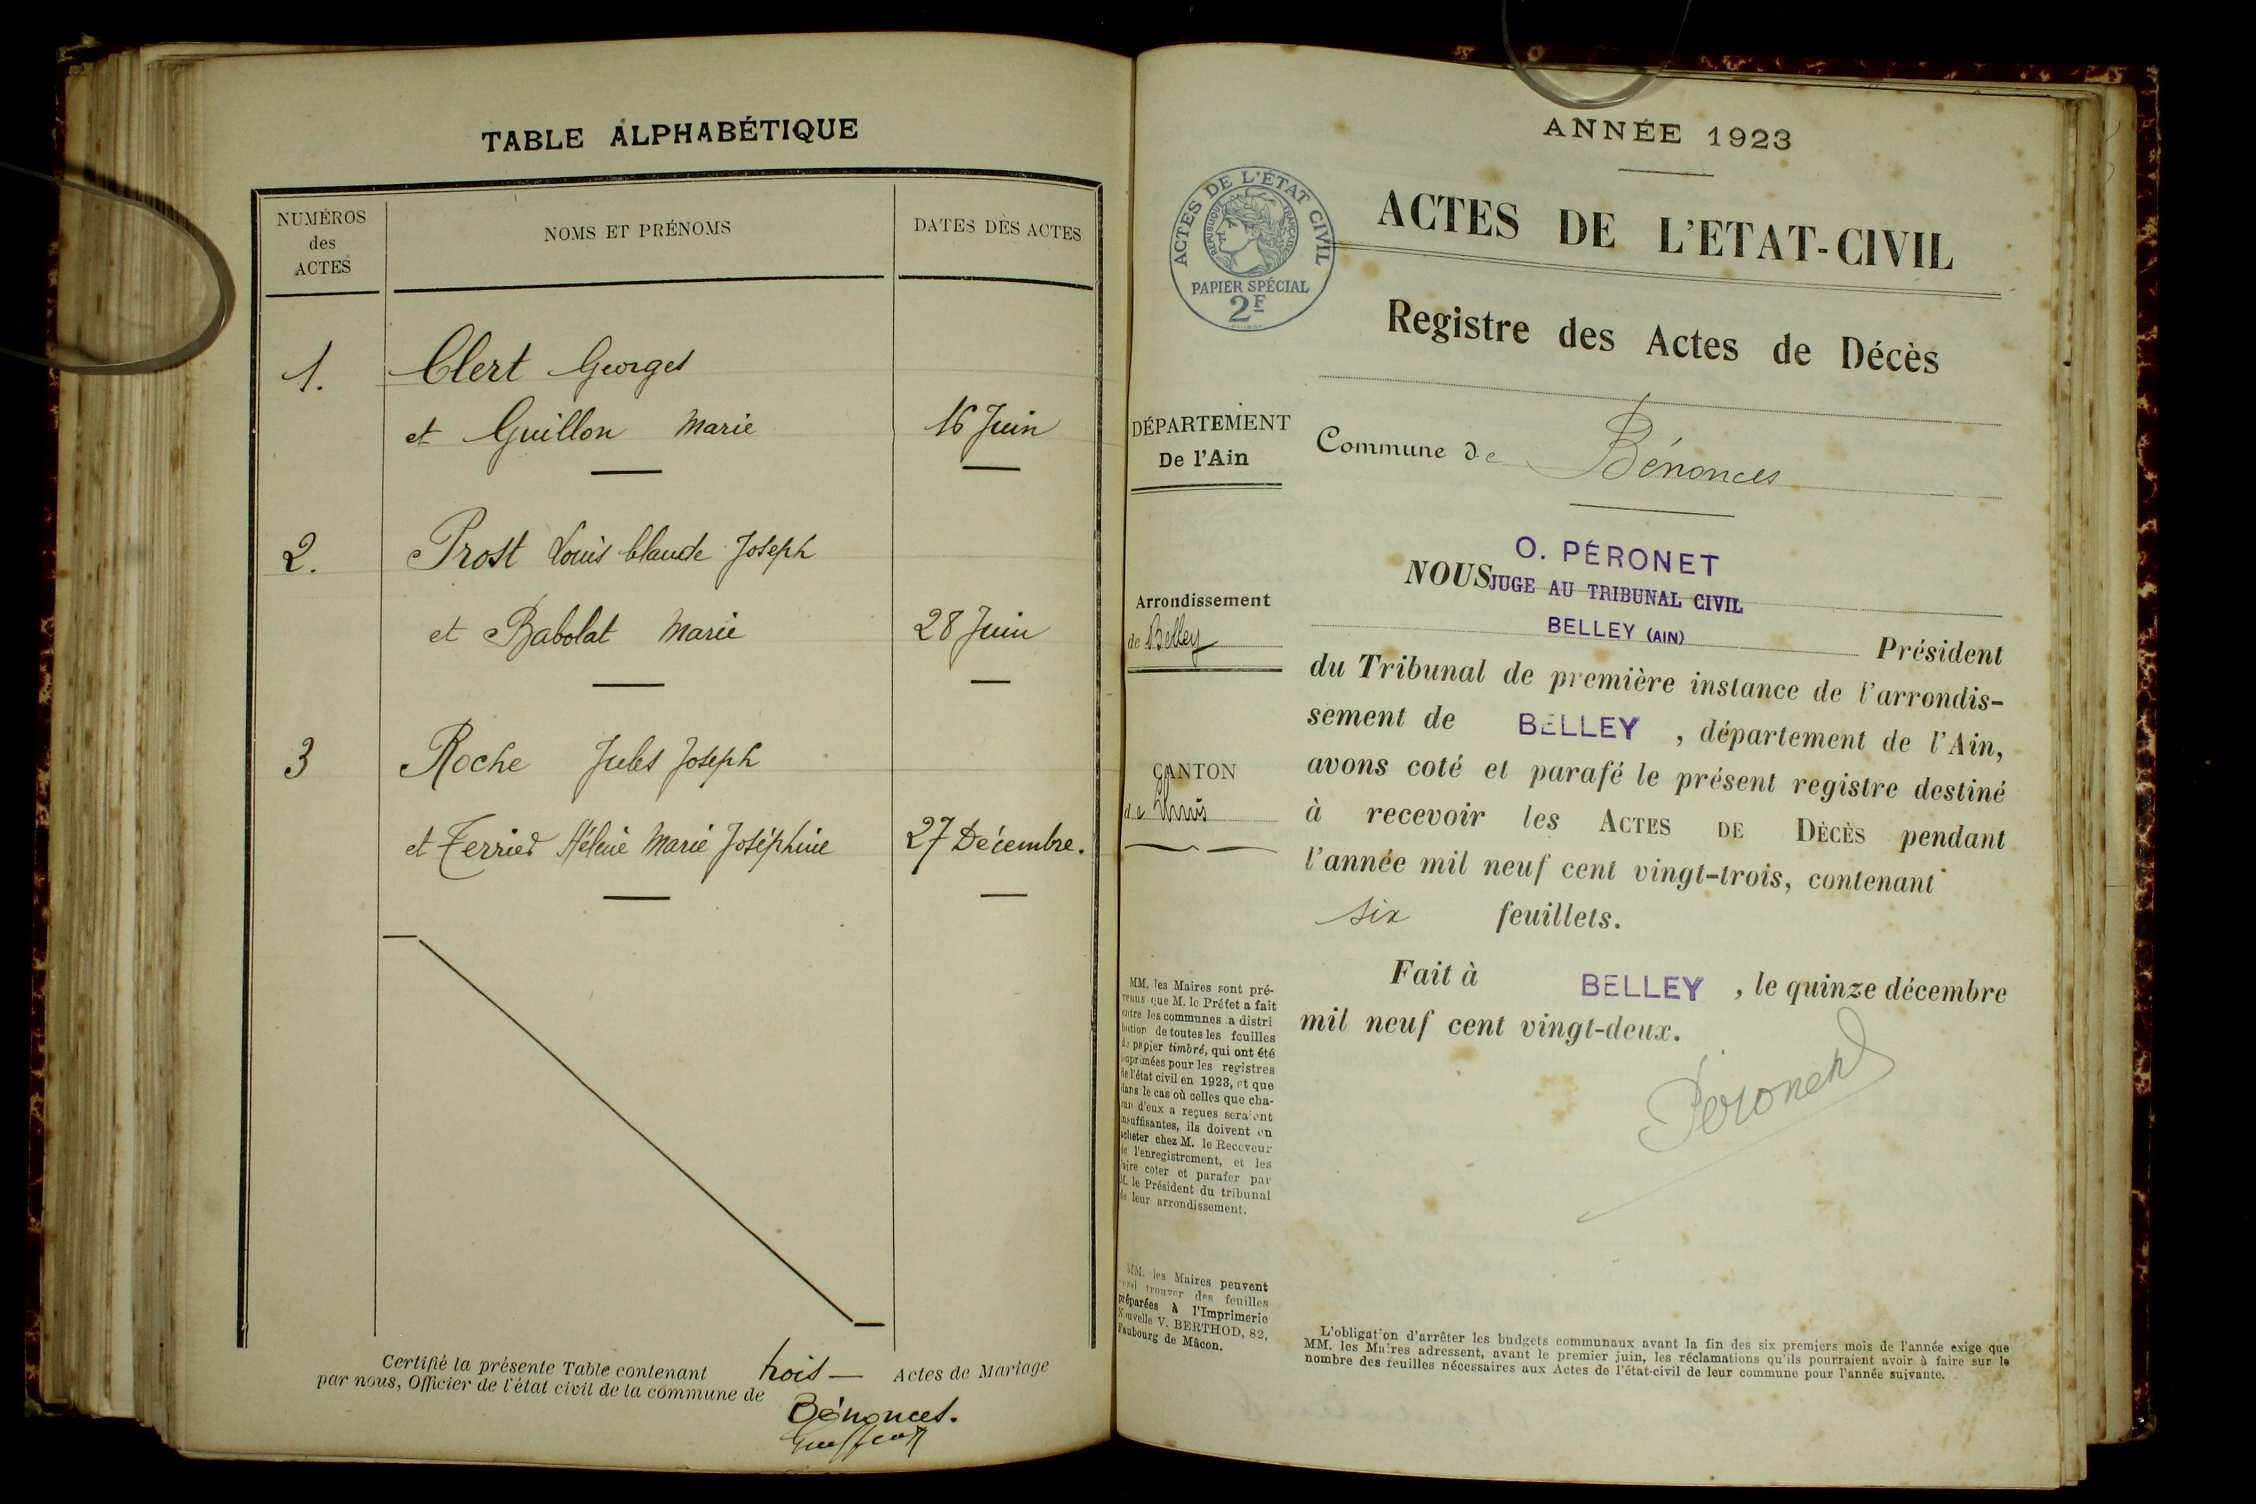 TABLE ALPHABÉTIQUE
NUMÉROS
des
ACTES
NOMS ET PRÉNOMS
DATES DES ACTES
1.
Clert Georges
et Guillon Marie
16 Juin
2.
Prost Louis Claude Joseph
et Babolat Marie
28 Juin
3
Roche Jules Joseph
et Terrier Hélène Marie Joséphine
27 Décembre.
Certifié la présente Table contenant trois Actes de Mariage
par nous, Officier de l'état civil de la commune de
Bénonces.
ANNÉE 1923
ACTES DE L'ÉTAT CIVIL
RÉPUBLIQUE FRANÇAISE
PAPIER SPÉCIAL
2F
ACTES DE L'ETAT-CIVIL
Registre des Actes de Décès
DÉPARTEMENT
De l'Ain
Commune de Bénonces
Arrondissement
de Belley
CANTON
de Lhuis
O. PÉRONET
NOUS JUGE AU TRIBUNAL CIVIL
BELLEY (AIN)
Président
du Tribunal de première instance de l'arrondis-
sement de BELLEY , département de l'Ain,
avons coté et parafé le présent registre destiné
à recevoir les ACTES DE DÈCÈS pendant
l'année mil neuf cent vingt-trois, contenant
six feuillets.
Fait à BELLEY , le quinze décembre
mil neuf cent vingt-deux.
Péronet
MM. les Maires sont pré-
venus que M. le Préfet a fait
entre les communes a distri
bution de toutes les feuilles
de papier timbré, qui ont été
imprimées pour les registres
de l'état civil en 1923, et que
dans le cas où celles que cha-
cun d'eux a reçues seraient
insuffisantes, ils doivent en
acheter chez M. le Receveur
de l'enregistrement, et les
faire coter et parafer par
M. le Président du tribunal
de leur arrondissement.
MM. les Maires peuvent
aussi trouver des feuilles
préparées à l'Imprimerie
Nouvelle V. BERTHOD, 82,
Faubourg de Mâcon.
L'obligation d'arrêter les budgets communaux avant la fin des six premiers mois de l'année exige que
MM. les Maires adressent, avant le premier juin, les réclamations qu'ils pourraient avoir à faire sur le
nombre des feuilles nécessaires aux Actes de l'état-civil de leur commune pour l'année suivante.